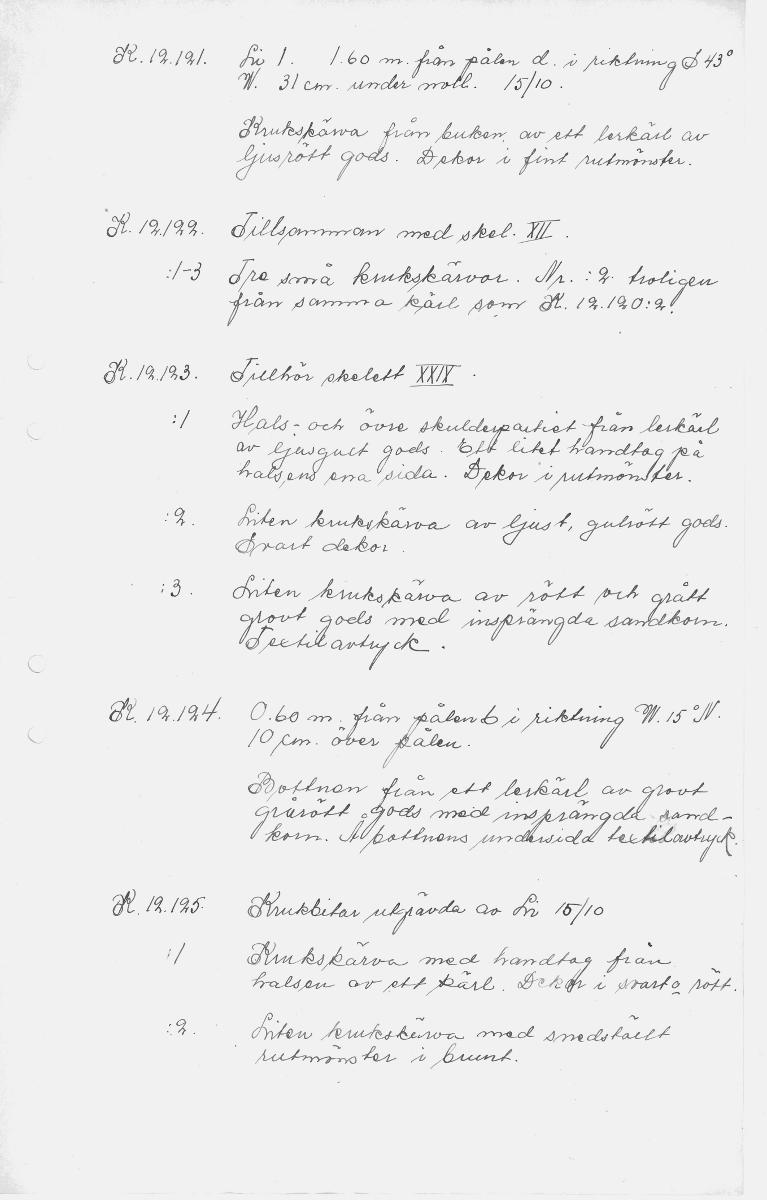 K. 12.121. Li 1. 1.60 m. från pålen d. i riktning S 43°
W. 31 cm. under noll. 15/10.
Krukskärva från buken av ett lerkärl av
ljusrött gods. Dekor i fint rutmönster.
K. 12.122. Tillsamman med skel. XII.
:1-3 Tre små krukskärvor. Nr. :2 troligen
från samma kärl som K. 12.120:2.
K. 12.123. Tillhör skelett XXIX.
:1 Hals- och övre skulderpartiet från lerkärl
av ljusgult gods. Ett litet handtag på
halsens ena sida. Dekor i rutmönster.
:2. Liten krukskärva av ljust, gulrött gods.
Svart dekor.
:3. Liten krukskärva av rött och grått
grovt gods med insprängda sandkorn.
Textilavtryck.
K. 12.124. 0.60 m. från pålen b i riktning W. 15° N.
10 cm. över pålen.
Bottnen från ett lerkärl av grovt
grårött gods med insprängda sand-
korn. Å bottnens undersida textilavtryck.
K. 12.125. Krukbitar utgrävda av Li 15/10
:1 Krukskärva med handtag från
halsen av ett kärl. Dekor i svart o rött.
:2. Liten krukskärva med snedställt
rutmönster i brunt.